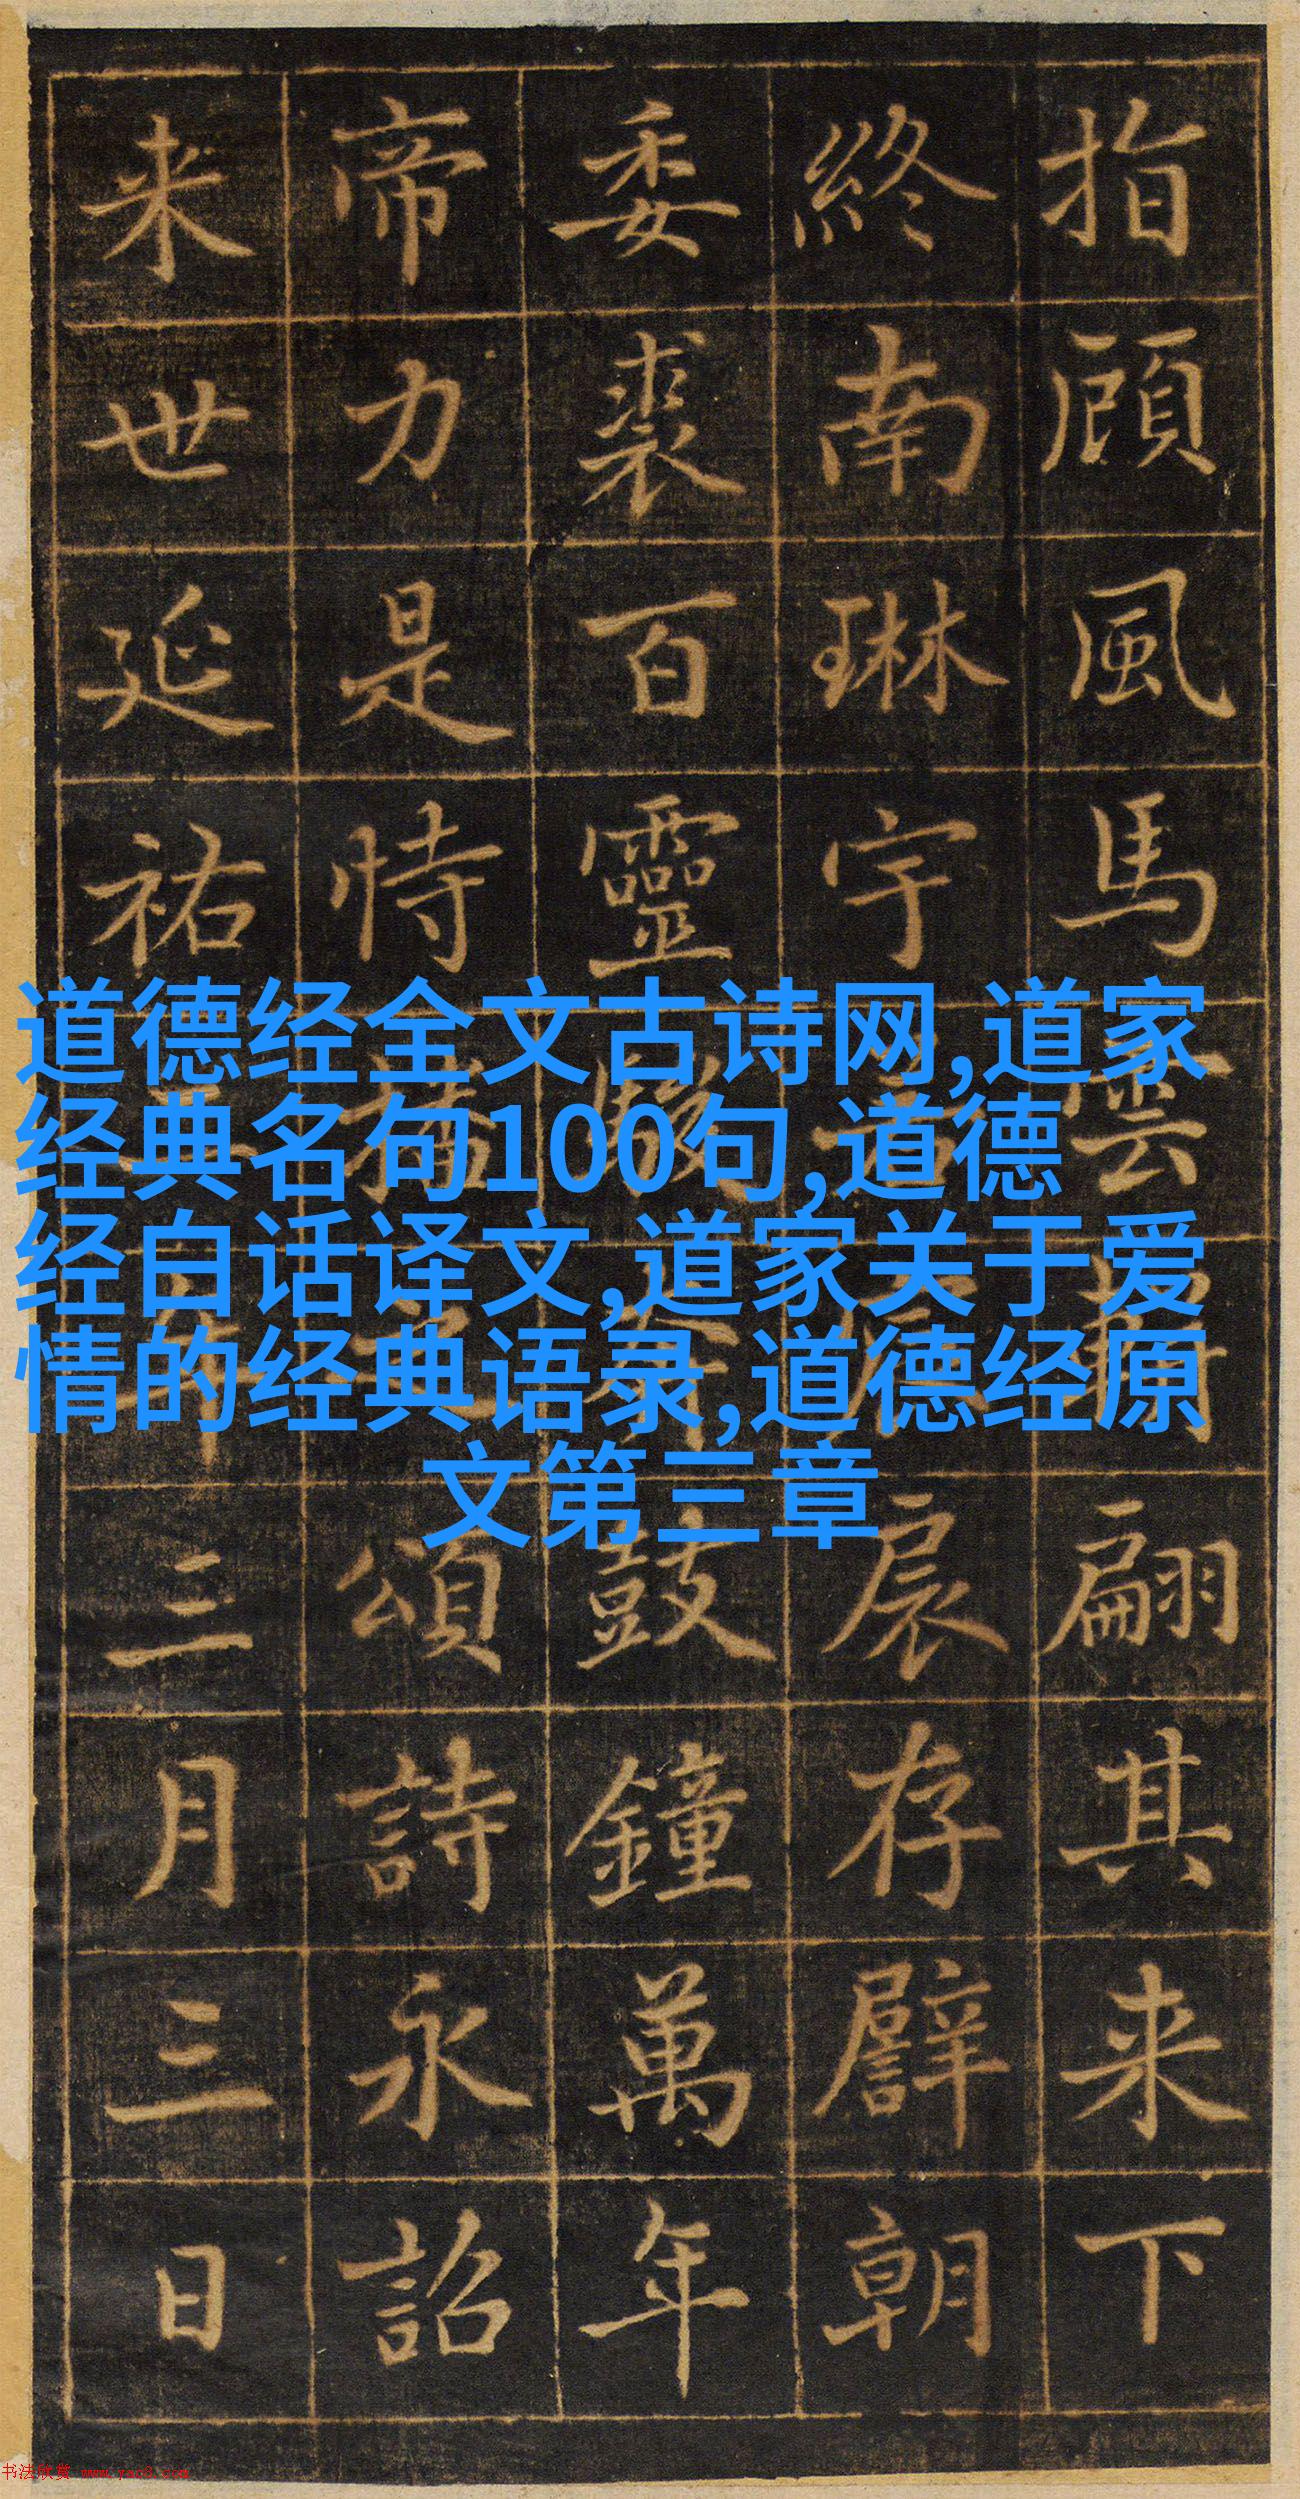 指顧風馬雲翩其来下
終南琳宇扆存譬朝
委裘百靈駿奔鼓鐘萬年
帝力是恃播之頌詩永詔
来世延祐五年三月三日
道德经全文古诗网,道家
经典名句100句,道德
经白话译文,道家关于爱
情的经典语录,道德经原
文第三章
书法欣赏 www.yac8.com